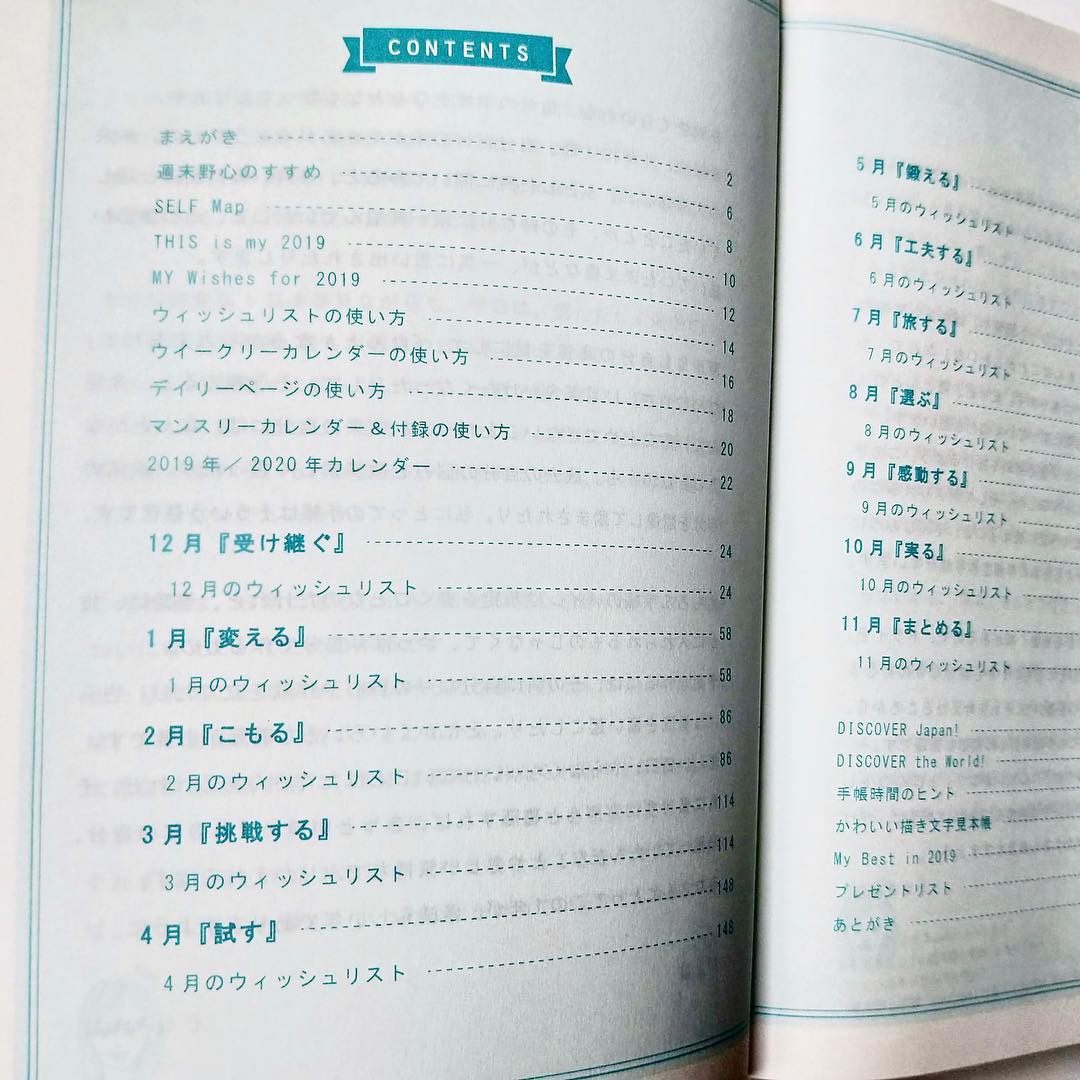 CONTENTS
まえがき 2
週末野心のすすめ 6
SELF Map 8
THIS is my 2019 10
MY Wishes for 2019 12
ウィッシュリストの使い方 14
ウイークリーカレンダーの使い方 16
デイリーページの使い方 18
マンスリーカレンダー＆付録の使い方 20
2019年／2020年カレンダー 22
12月『受け継ぐ』 24
12月のウィッシュリスト 24
1月『変える』 58
1月のウィッシュリスト 58
2月『こもる』 86
2月のウィッシュリスト 86
3月『挑戦する』 114
3月のウィッシュリスト 114
4月『試す』 148
4月のウィッシュリスト 148
5月『鍛える』
5月のウィッシュリスト
6月『工夫する』
6月のウィッシュリスト
7月『旅する』
7月のウィッシュリスト
8月『選ぶ』
8月のウィッシュリスト
9月『感動する』
9月のウィッシュリスト
10月『実る』
10月のウィッシュリスト
11月『まとめる』
11月のウィッシュリスト
DISCOVER Japan!
DISCOVER the World!
手帳時間のヒント
かわいい描き文字見本帳
My Best in 2019
プレゼントリスト
あとがき